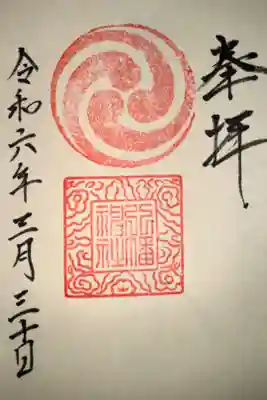 奉拝
八幡
神社
令和六年三月三十日